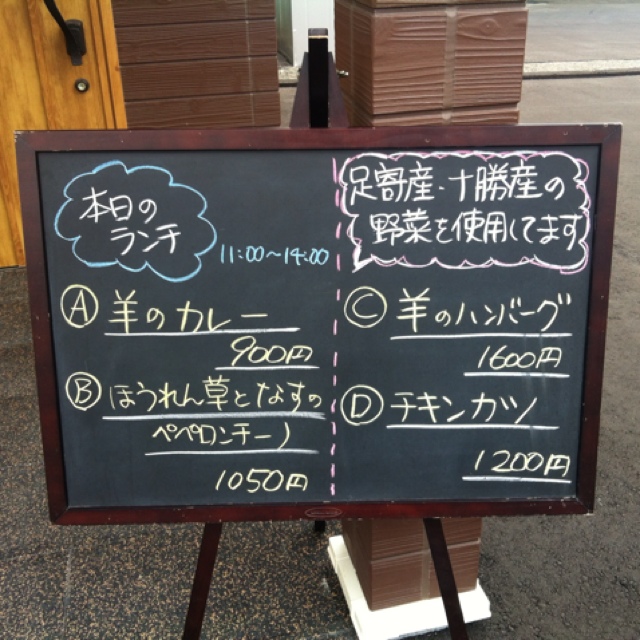 本日の
ランチ
11:00~14:00
Ⓐ 羊のカレー
900円
Ⓑ ほうれん草となすの
ペペロンチーノ
1050円
足寄産・十勝産の
野菜を使用してます
Ⓒ 羊のハンバーグ
1600円
Ⓓ チキンカツ
1200円